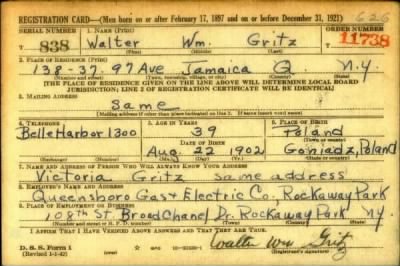 REGISTRATION CARD—(Men born on or after February 17, 1897 and on or before December 31, 1921) 626
SERIAL NUMBER 1. NAME (Print) ORDER NUMBER
T 838 Walter Wm. Gritz 11738
(First) (Middle) (Last)
2. PLACE OF RESIDENCE (Print)
138-37. 97 Ave Jamaica Q N.Y.
(Number and street) (Town, township, village, or city) (County) (State)
[THE PLACE OF RESIDENCE GIVEN ON THE LINE ABOVE WILL DETERMINE LOCAL BOARD
JURISDICTION; LINE 2 OF REGISTRATION CERTIFICATE WILL BE IDENTICAL]
3. MAILING ADDRESS
Same
[Mailing address if other than place indicated on line 2. If same insert word same]
4. TELEPHONE 5. AGE IN YEARS 6. PLACE OF BIRTH
Belle Harbor 1300 39 Poland
DATE OF BIRTH (Town or county)
Aug. 22 1902 Goniadz, Poland
(Exchange) (Number) (Mo.) (Day) (Yr.) (State or country)
7. NAME AND ADDRESS OF PERSON WHO WILL ALWAYS KNOW YOUR ADDRESS
Victoria Gritz same address
8. EMPLOYER'S NAME AND ADDRESS
Queensboro Gas & Electric Co., Rockaway Park
9. PLACE OF EMPLOYMENT OR BUSINESS
108th St. Broad Chanel Dr. Rockaway Park N.Y.
(Number and street or R. F. D. number) (Town) (County) (State)
I AFFIRM THAT I HAVE VERIFIED ABOVE ANSWERS AND THAT THEY ARE TRUE.
D. S. S. Form 1 Walter Wm Gritz
(Revised 1-1-42) (Registrant's signature)